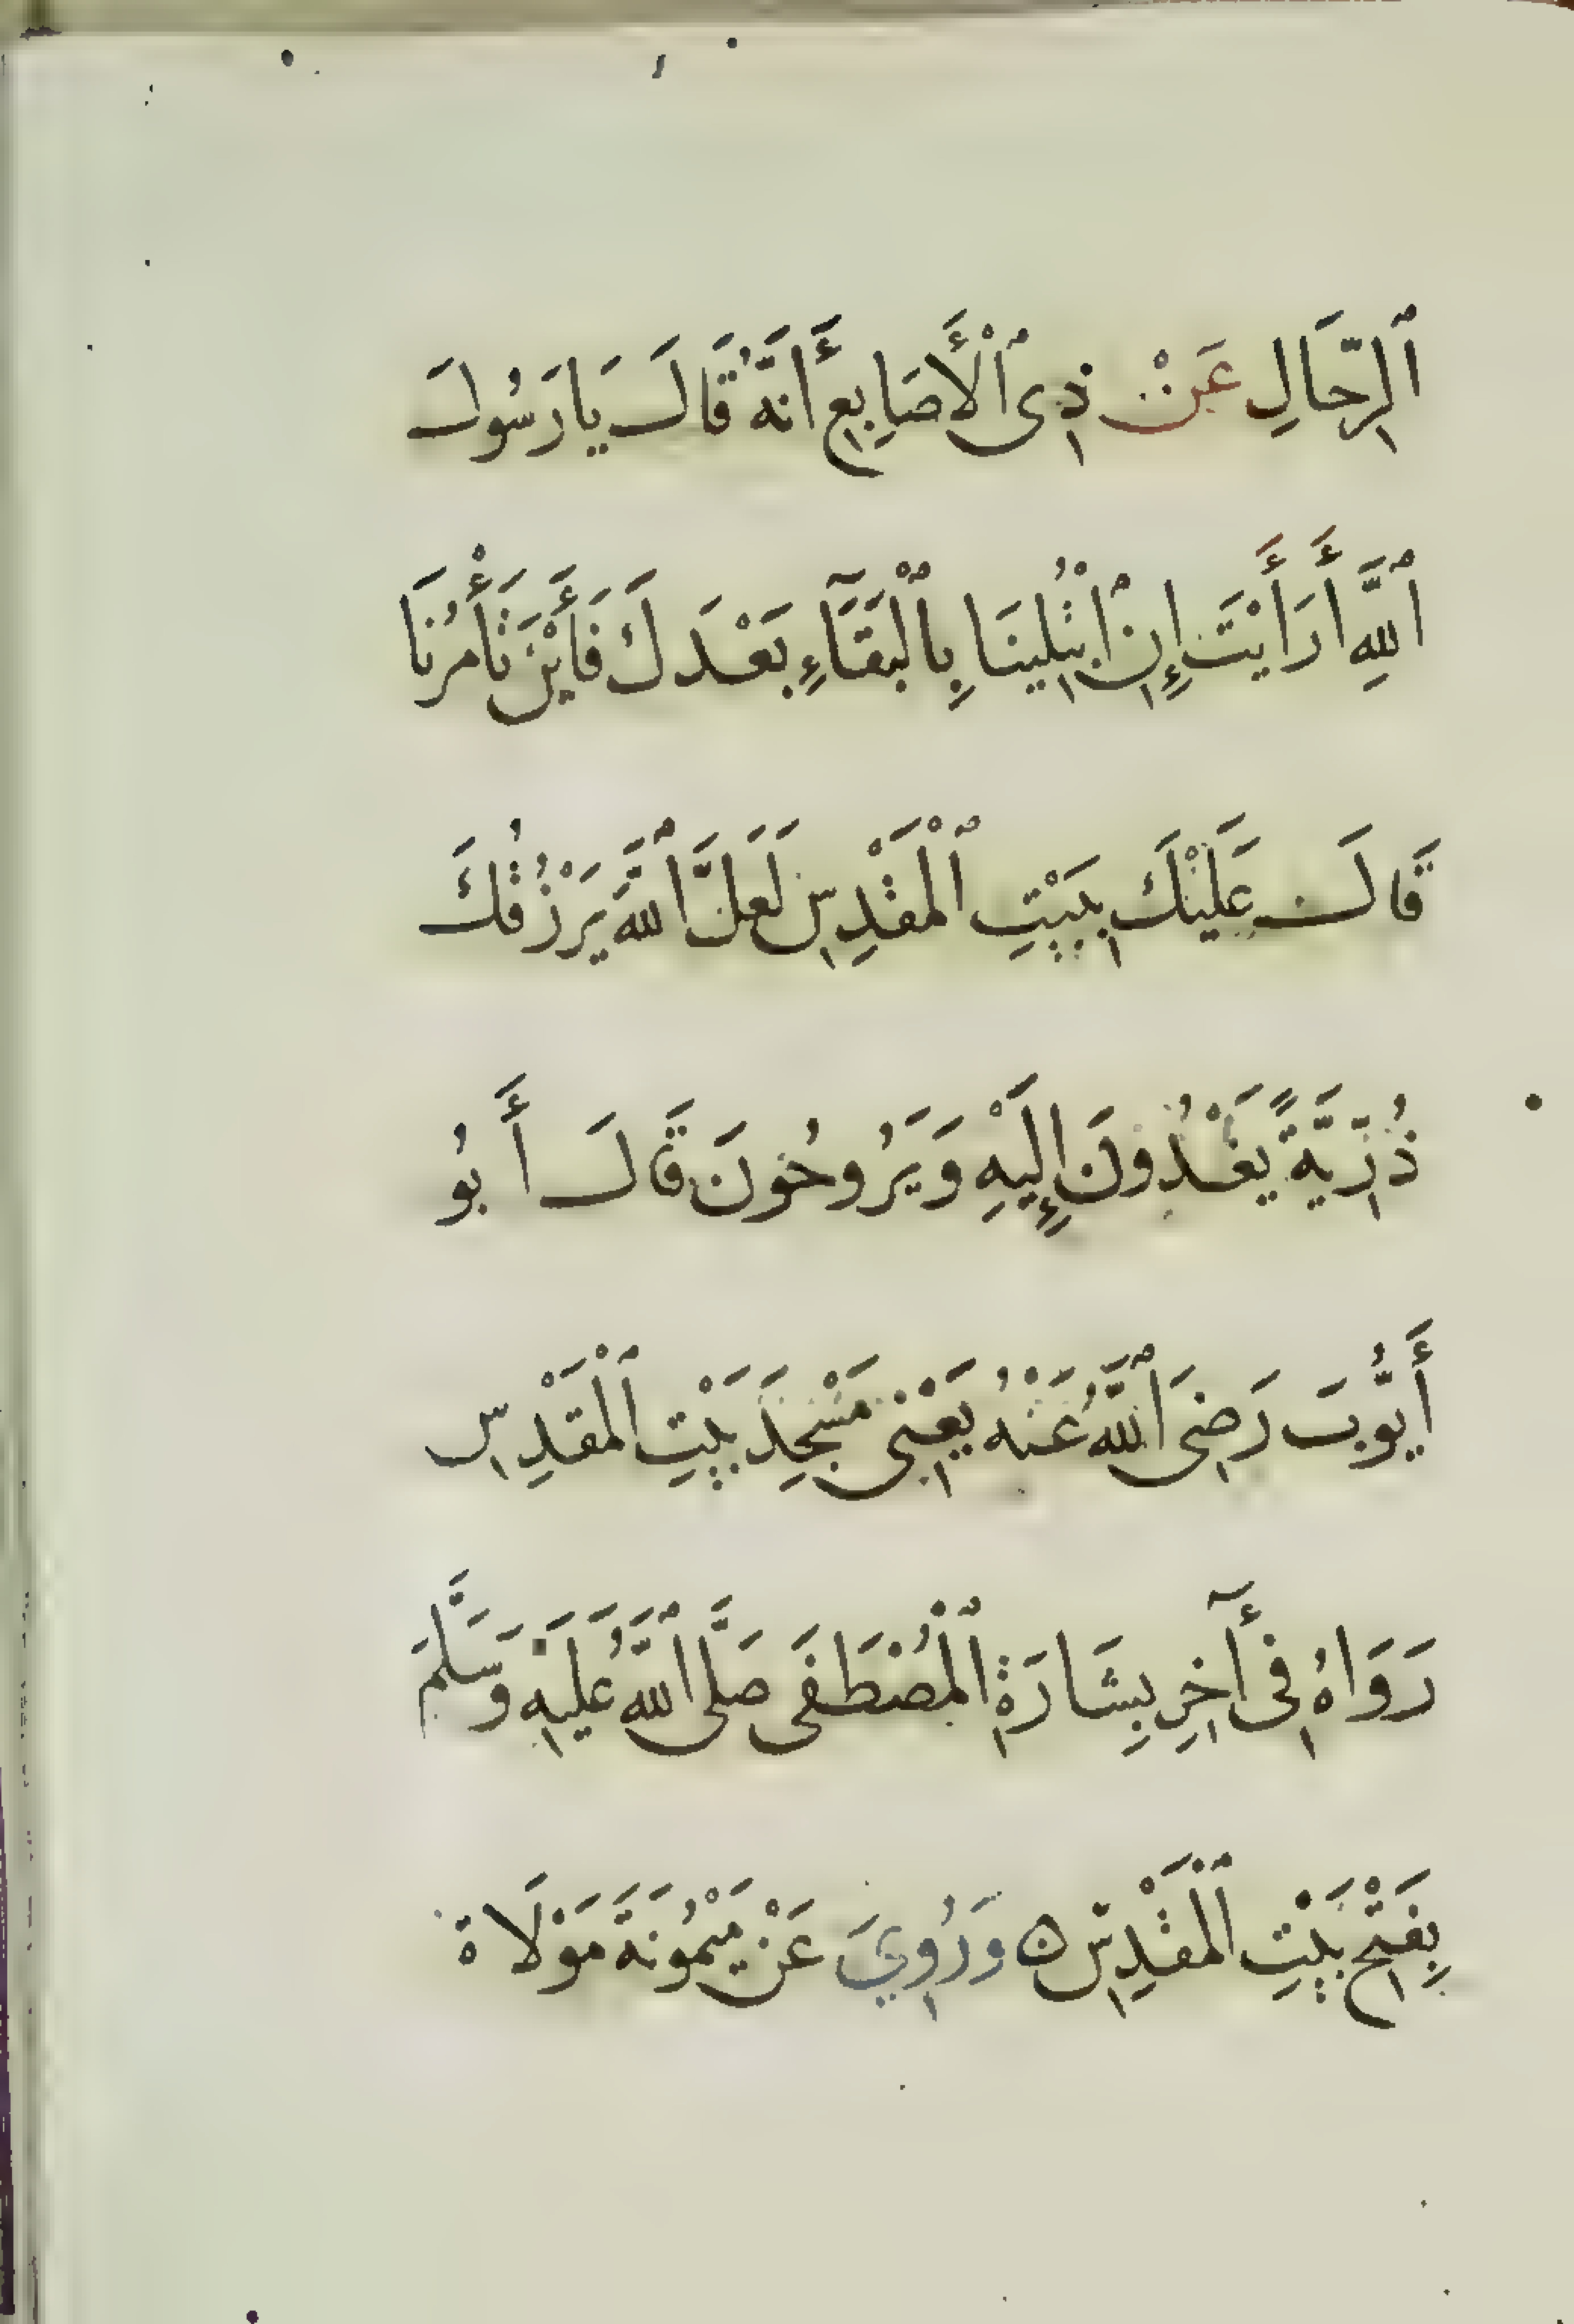 ٱلرِّحَالِ عَنْ ذِى ٱلْأَصَابِعِ أَنَّهُ قَالَ يَا رَسُولَ
ٱللَّهِ أَرَأَيْتَ إِنِ ٱبْتُلِينَا بِٱلْبَقَآءِ بَعْدَكَ فَأَيْنَ تَأْمُرُنَا
قَالَ عَلَيْكَ بِبَيْتِ ٱلْمَقْدِسِ لَعَلَّ ٱللَّهَ يَرْزُقُكَ
ذُرِّيَّةً يَغْدُونَ إِلَيْهِ وَيَرُوحُونَ قَالَ أَبُو
أَيُّوبَ رَضِىَ ٱللَّهُ عَنْهُ يَعْنِى مَسْجِدَ بَيْتِ ٱلْمَقْدِسِ
رَوَاهُ فِى آخِرِ بِشَارَةِ ٱلْمُصْطَفَى صَلَّى ٱللَّهُ عَلَيْهِ وَسَلَّمَ
بِفَتْحِ بَيْتِ ٱلْمَقْدِسِ ه وَرُوِيَ عَنْ مَيْمُونَةَ مَوْلَاةِ